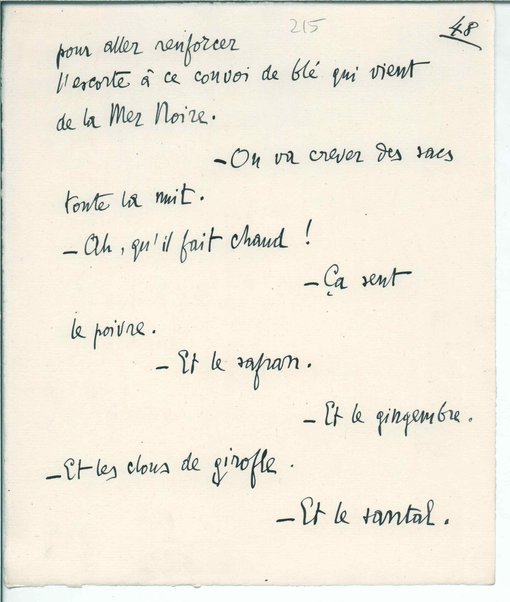 215
48
pour aller renforcer
l'escorte à ce convoi de blé qui vient
de la Mer Noire.
—On va crever des sacs
toute la nuit.
—Ah, qu'il fait chaud !
—Ça sent
le poivre.
—Et le safran.
—Et le gingembre.
—Et les clous de girofle.
—Et le santal.